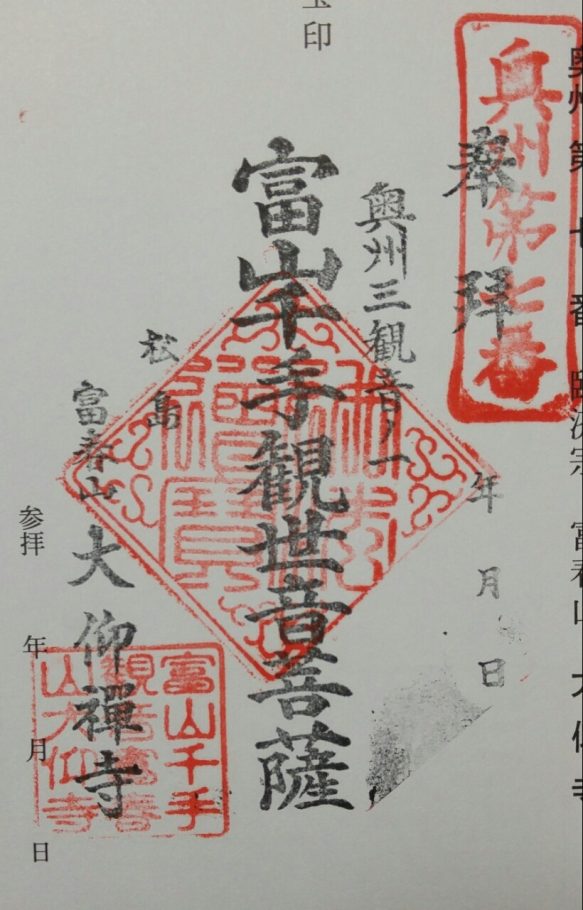 奥州 第 七 番 臨済宗 富春山 大仰寺
奥州第七番
奉拝
年 月 日
奥州三観音ノ一
富山千手観世音菩薩
佛法
僧寶
松島
富春山 大仰禪寺
富山千手
観音富春
山大仰寺
参拝 年 月 日